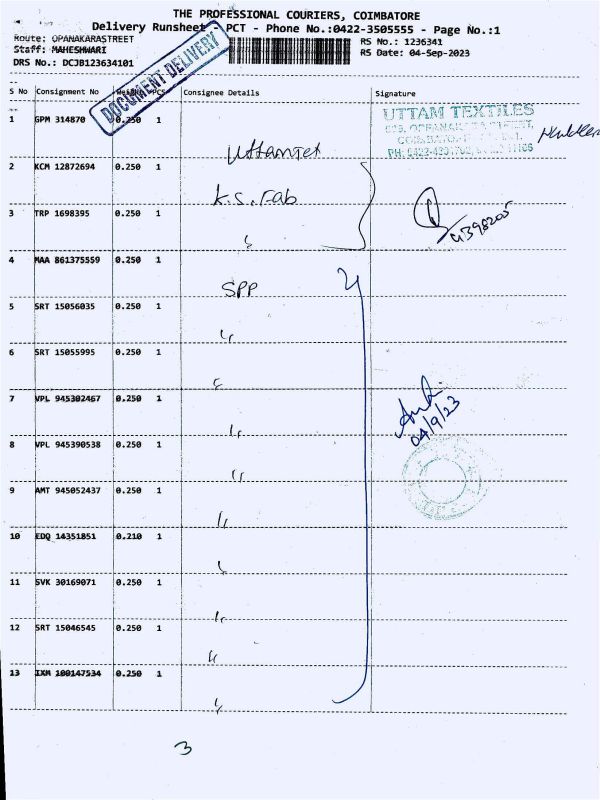 THE PROFESSIONAL COURIERS, COIMBATORE
Delivery Runsheet - PCT - Phone No.:0422-3505555 - Page No.:1
Route: OPANAKARASTREET
Staff: MAHESHWARI
DRS No.: DCJB123634101
RS No.: 1236341
RS Date: 04-Sep-2023
DOCUMENT DELIVERY
S No Consignment No Weight PCS Consignee Details Signature
1 GPM 314870 0.250 1
UTTAM TEXTILES
2 KCM 12872694 0.250 1
K.S. Fab
3 TRP 1698395 0.250 1
4 MAA 861375559 0.250 1
SPP
5 SRT 15056035 0.250 1
6 SRT 15055995 0.250 1
7 VPL 945302467 0.250 1
04/9/23
8 VPL 945390538 0.250 1
9 AMT 945052437 0.250 1
10 EDQ 14351851 0.210 1
11 SVK 30169071 0.250 1
12 SRT 15046545 0.250 1
13 IXM 100147534 0.250 1
3